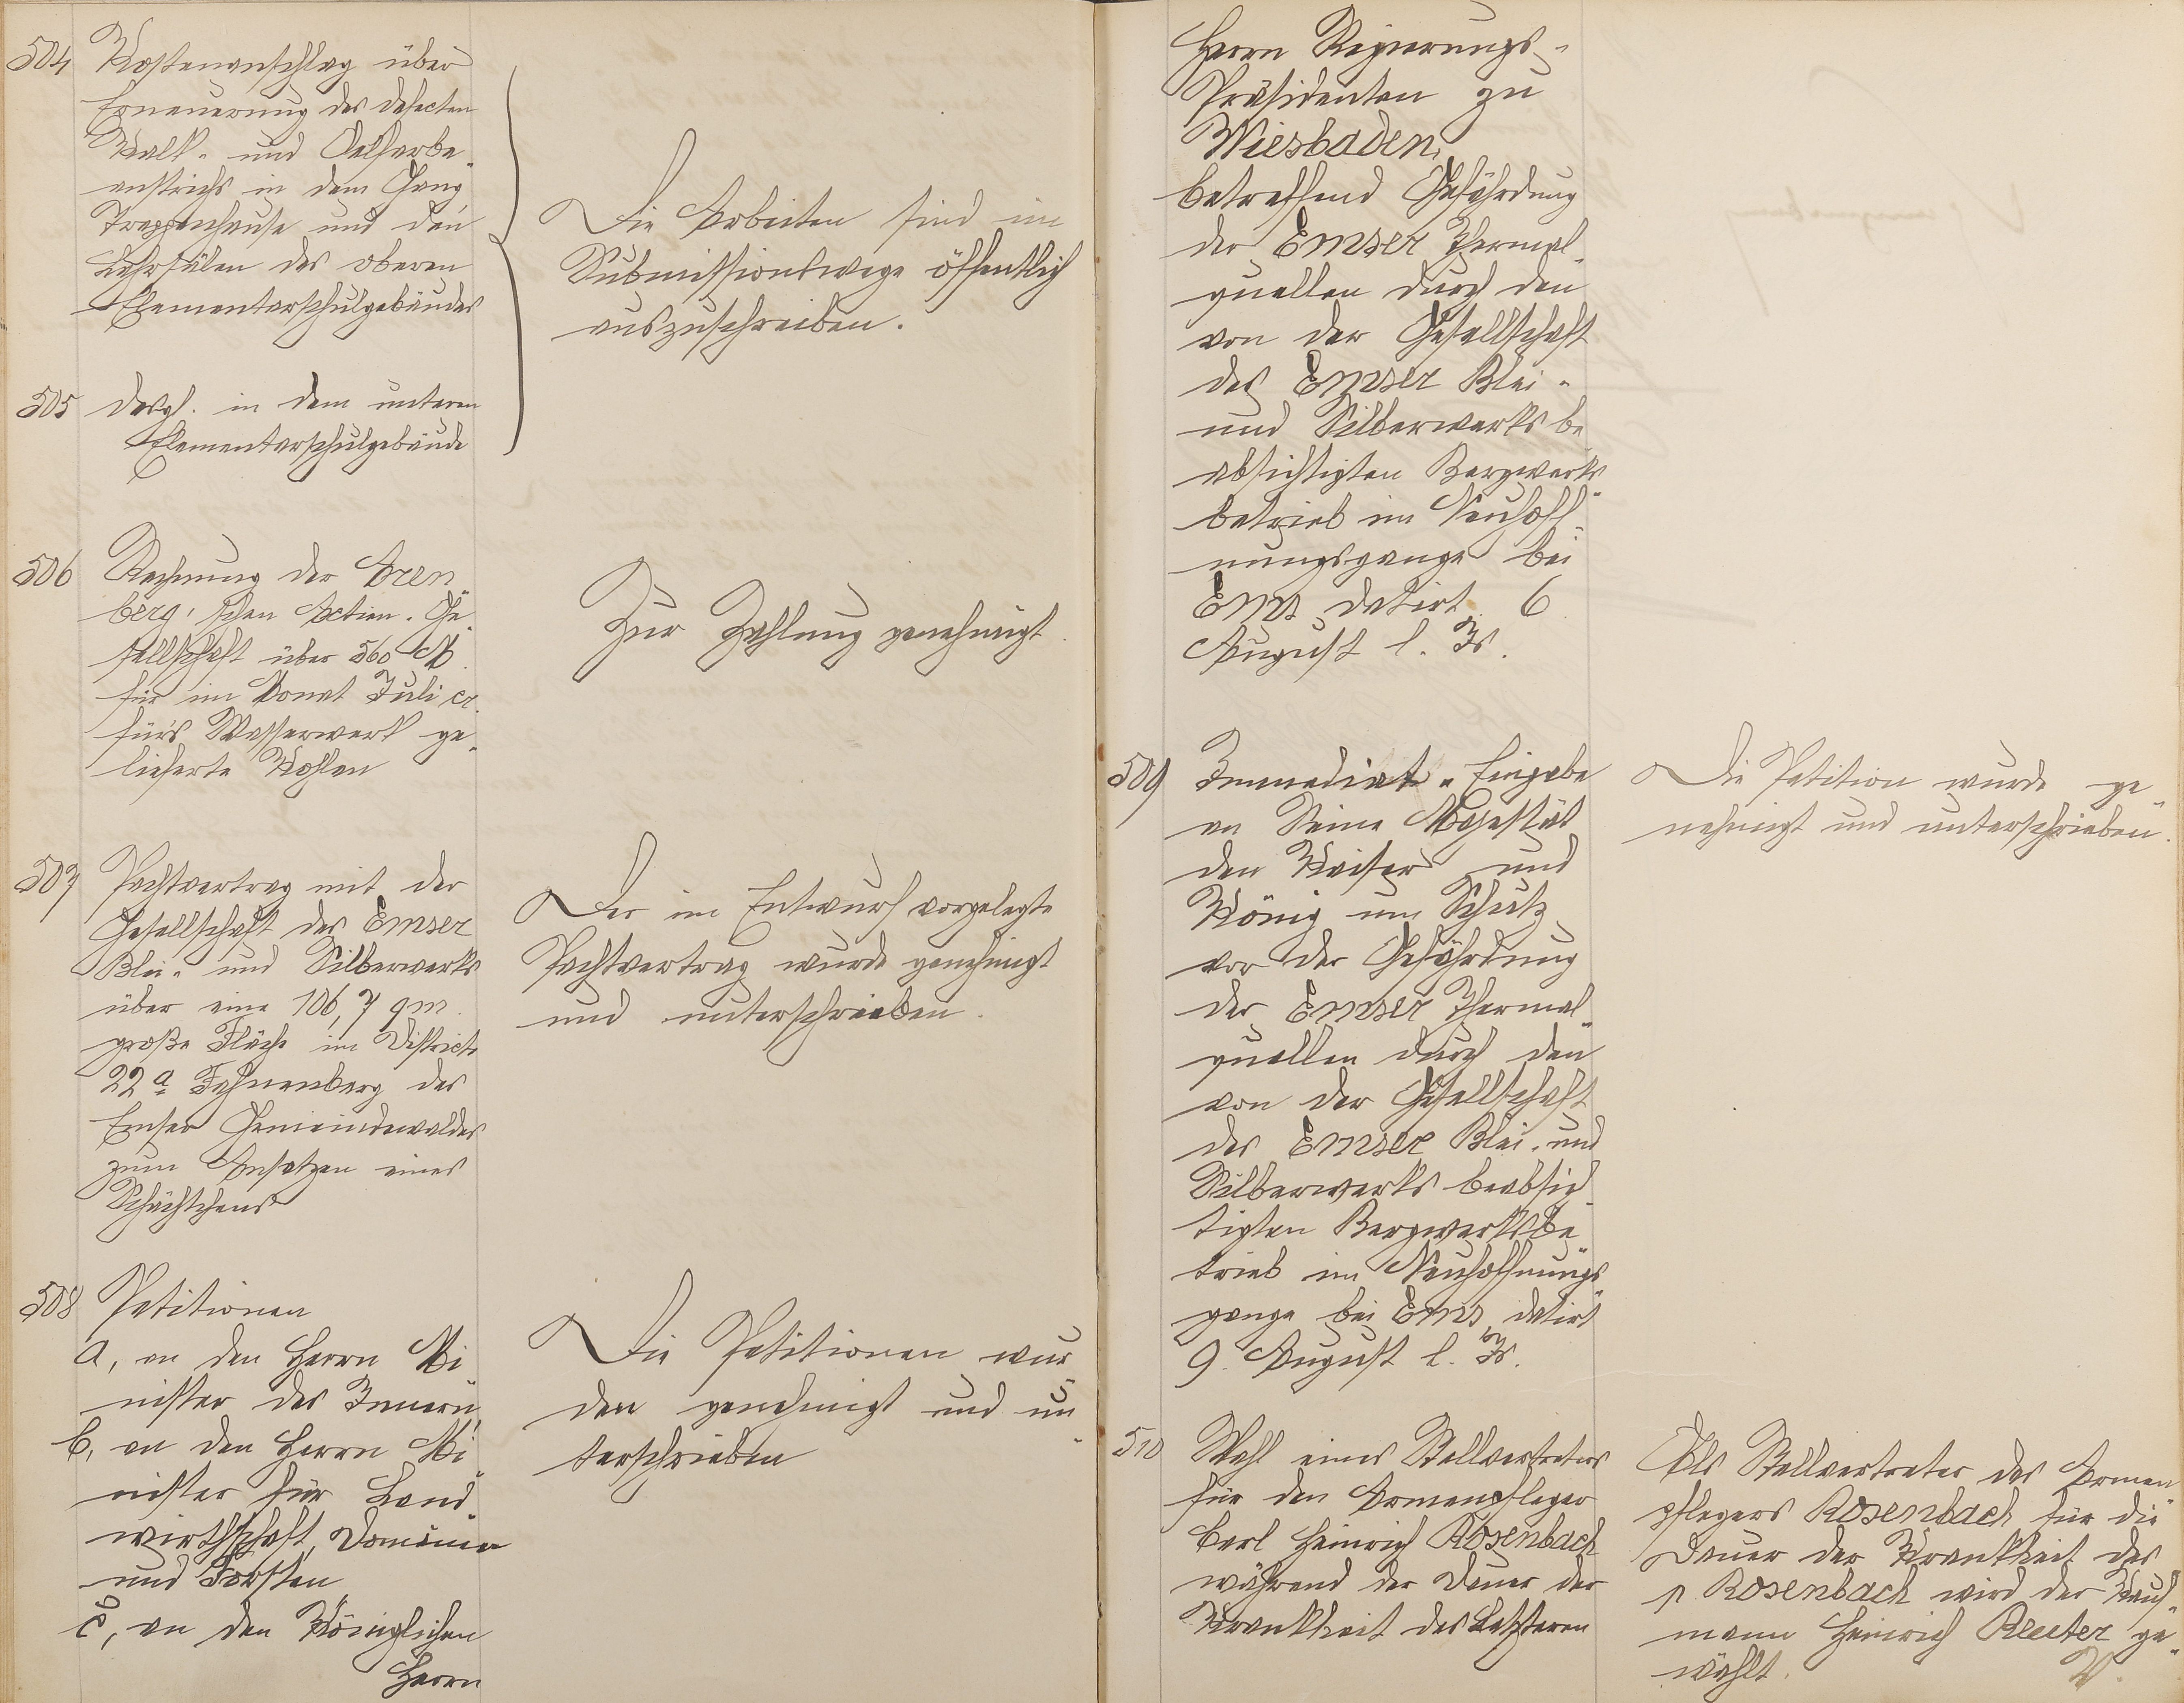 504 Kostenanschlag über
Erneuerung des defecten
Kalk- und Oelfarbe-
anstrichs in dem Gang,
Treppenhause und den
Lehrsälen des oberen
Elementarschulgebäudes
505 desgl. in dem unteren
Elementarschulgebäude
Die Arbeiten sind im
Submissionswege öffentlich
auszuschreiben.
506 Rechnung der Aren-
berg'schen Actien-Ge-
sellschaft über 560 M
für im Monat Juli cr.
für's Wasserwerk ge-
lieferte Kohlen
Zur Zahlung genehmigt.
507 Pachtvertrag mit der
Gesellschaft des Emser
Blei- und Silberwerks
über eine 106,7 qm
große Fläche im Districte
22a Fahnenberg des
Emser Gemeindewaldes
zum Ansetzen eines
Schächtchens
Der im Entwurf vorgelegte
Pachtvertrag wurde genehmigt
und unterschrieben.
508 Petitionen
a, an den Herrn Mi-
nister des Innern,
b, an den Herrn Mi-
nister für Land-
wirthschaft, Domänen
und Forsten
c, an den Königlichen
Herrn
Die Petitionen wur-
den genehmigt und un-
terschrieben
Herrn Regierungs-
Präsidenten zu
Wiesbaden,
betreffend Gefährdung
der Emser Thermal-
quellen durch den
von der Gesellschaft
des Emser Blei-
und Silberwerks be-
absichtigten Bergwerks-
betrieb im Neuhoff-
nungsgange bei
Ems datirt 6
August l. Js.
509 Immediat-Eingabe
an Seine Majestät
den Kaiser und
König um Schutz
vor der Gefährdung
der Emser Thermal-
quellen durch den
von der Gesellschaft
des Emser Blei- und
Silberwerks beabsich-
tigten Bergwerksbe-
trieb im Neuhoffnungs-
gange bei Ems datirt
9. August l. Js.
Die Petition wurde ge-
nehmigt und unterschrieben.
510 Wahl eines Stellvertreters
für den Armenpfleger
Carl Heinrich Rosenbach
während der Dauer der
Krankheit des Letzteren
Als Stellvertreter des Armen-
pflegers Rosenbach für die
Dauer der Krankheit des
p Rosenbach wird der Kauf-
mann Heinrich Reuter ge-
wählt.